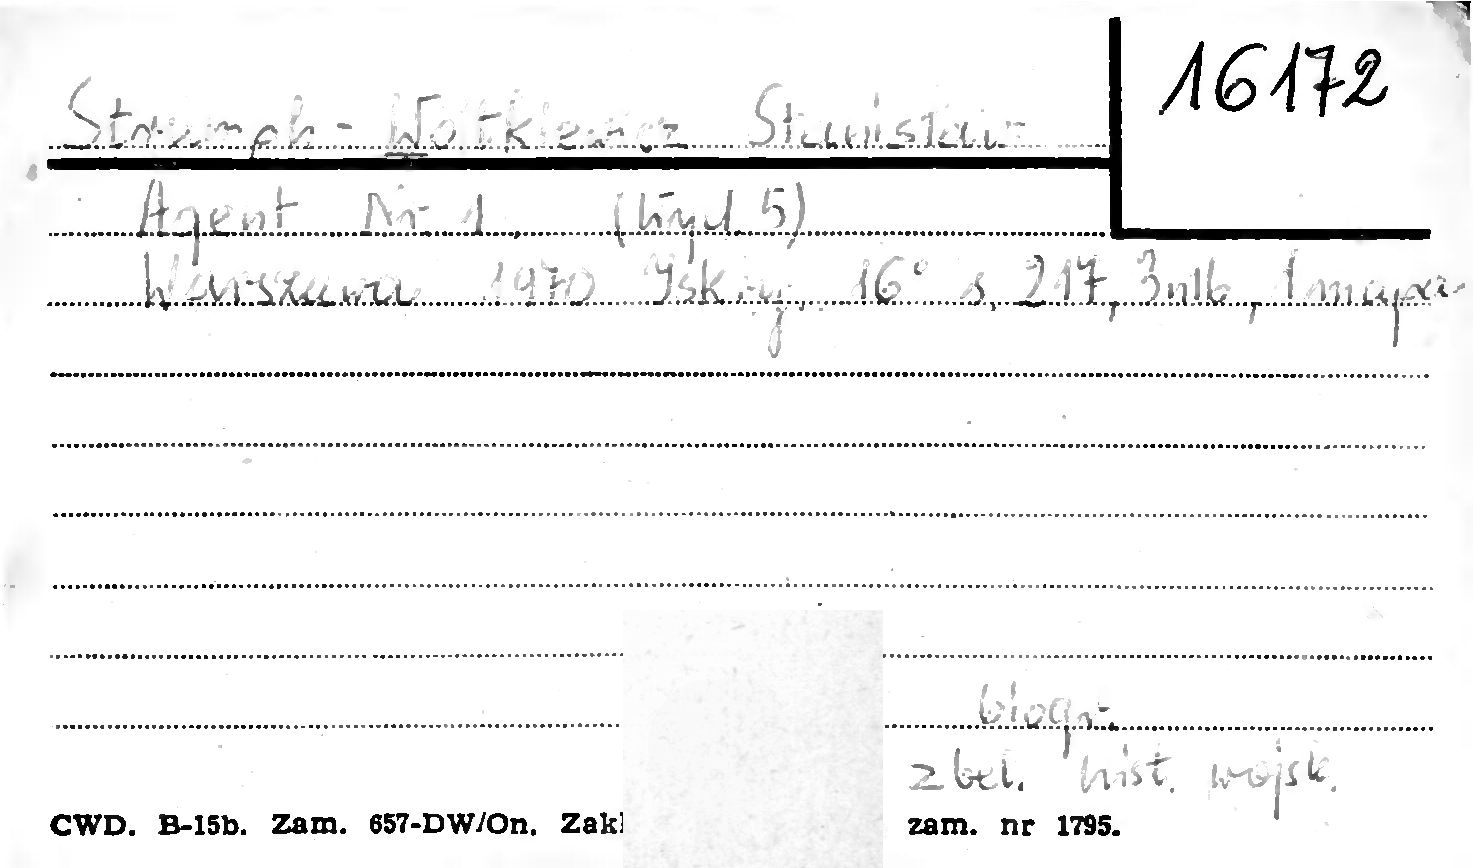 16172
Strumph-Wojtkiewicz Stanisław
Agent Nr 1. (Wyd 5)
Warszawa 1970 Iskry. 16° s. 217, 3nlb, 1 mapa
biogr.
zbel. hist. wojsk.
CWD. B-15b. Zam. 657-DW/On. Zakł zam. nr 1795.